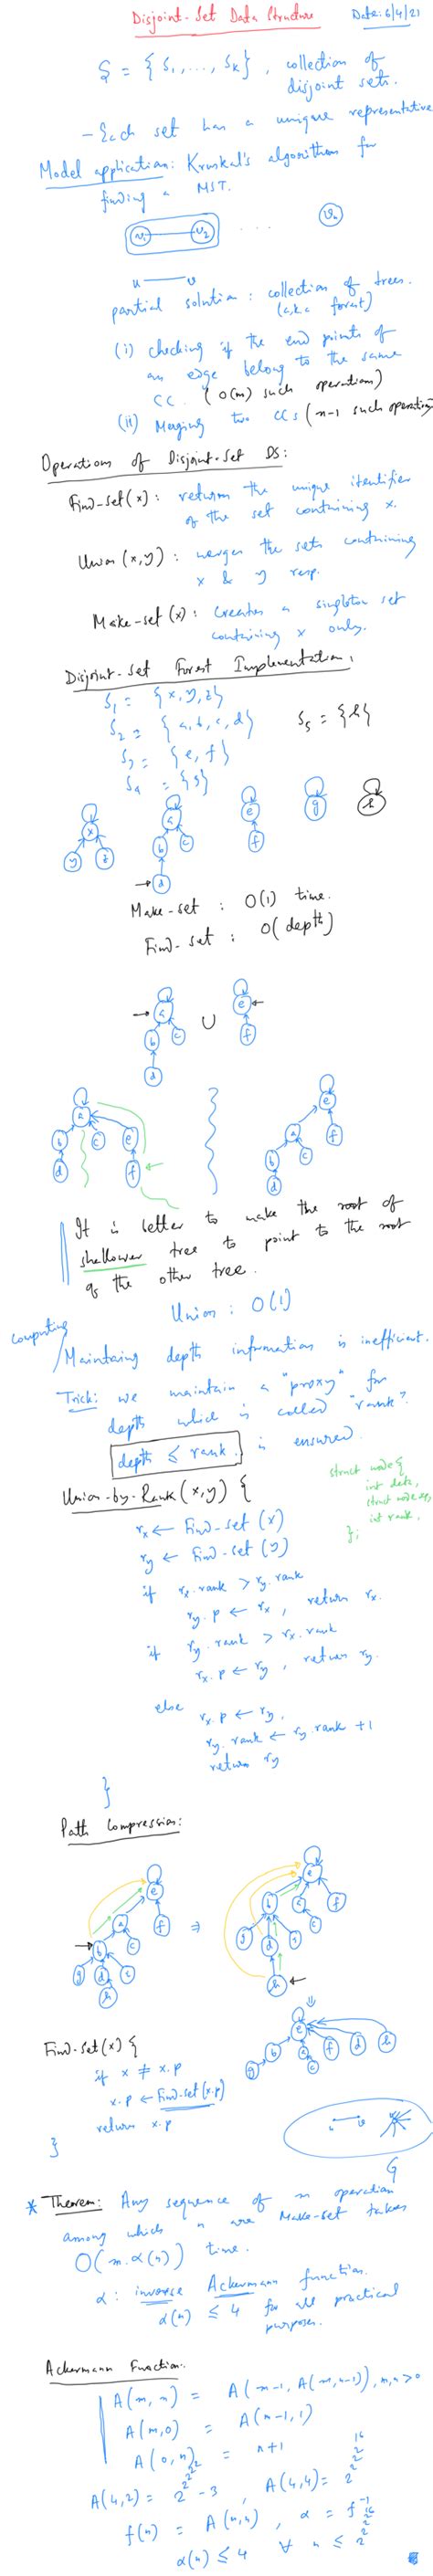 Disjoint-Set Data Structure Date: 6/4/21
S = { S1, ..., Sk } , collection of
disjoint sets.
- Each set has a unique representative
Model application: Kruskal's algorithm for
finding a MST.
v1 v2 ... vn
u v
partial solution : collection of trees.
(a.k.a forest)
(i) checking if the end points of
an edge belong to the same
CC. ( O(m) such operations)
(ii) Merging two CCs ( n-1 such operations
Operations of Disjoint-Set DS:
Find-Set(x) : returns the unique identifier
of the set containing x.
Union (x,y) : merges the sets containing
x & y resp.
Make-set (x) : creates a singleton set
containing x only.
Disjoint-Set Forest Implementation:
S1 = {x,y,z}
S2 = {a,b,c,d} S5 = {h}
S3 = {e,f}
S4 = {g}
x a e g h
y z b c f
d
Make-set : O(1) time.
Find-set : O(depth)
a ∪ e
b c f
d
a e
b c e a f
d f b c
d
It is better to make the root of
shallower tree to point to the root
of the other tree.
Union : O(1)
computing
Maintaing depth information is inefficient.
Trick: we maintain a "proxy" for
depth which is called "rank".
depth ≤ rank. is ensured.
struct node {
int data,
int rank.
};
Union-by-Rank(x,y) {
rx ← Find-Set (x)
ry ← Find-Set (y)
if rx.rank > ry.rank
ry.p ← rx , return rx.
if ry.rank > rx.rank
rx.p ← ry , return ry.
else rx.p ← ry,
ry.rank ← ry.rank +1
return ry
}
Path Compression:
e ⇒ e
a f b a f
b c g d c
g d
h h
⇓
e
b a f d h
g c
Find-Set(x) {
if x ≠ x.p
x.p ← Find-Set(x.p)
return x.p
}
u v
G
* Theorem: Any sequence of m operation
among which n are Make-Set takes
O( m.α(n) ) time.
α : inverse Ackermann function.
α(n) ≤ 4 for all practical
purposes.
Ackermann Function:
A(m,n) = A(m-1, A(m,n-1)), m,n>0
A(m,0) = A(m-1,1)
A(0,n) = n+1
A(4,2) = 2^2^2^2^2 - 3 , A(4,4) = 2^2^2^2^16
f(n) = A(n,n) , α = f^-1
α(n) ≤ 4 ∀ n ≤ 2^2^2^2^16